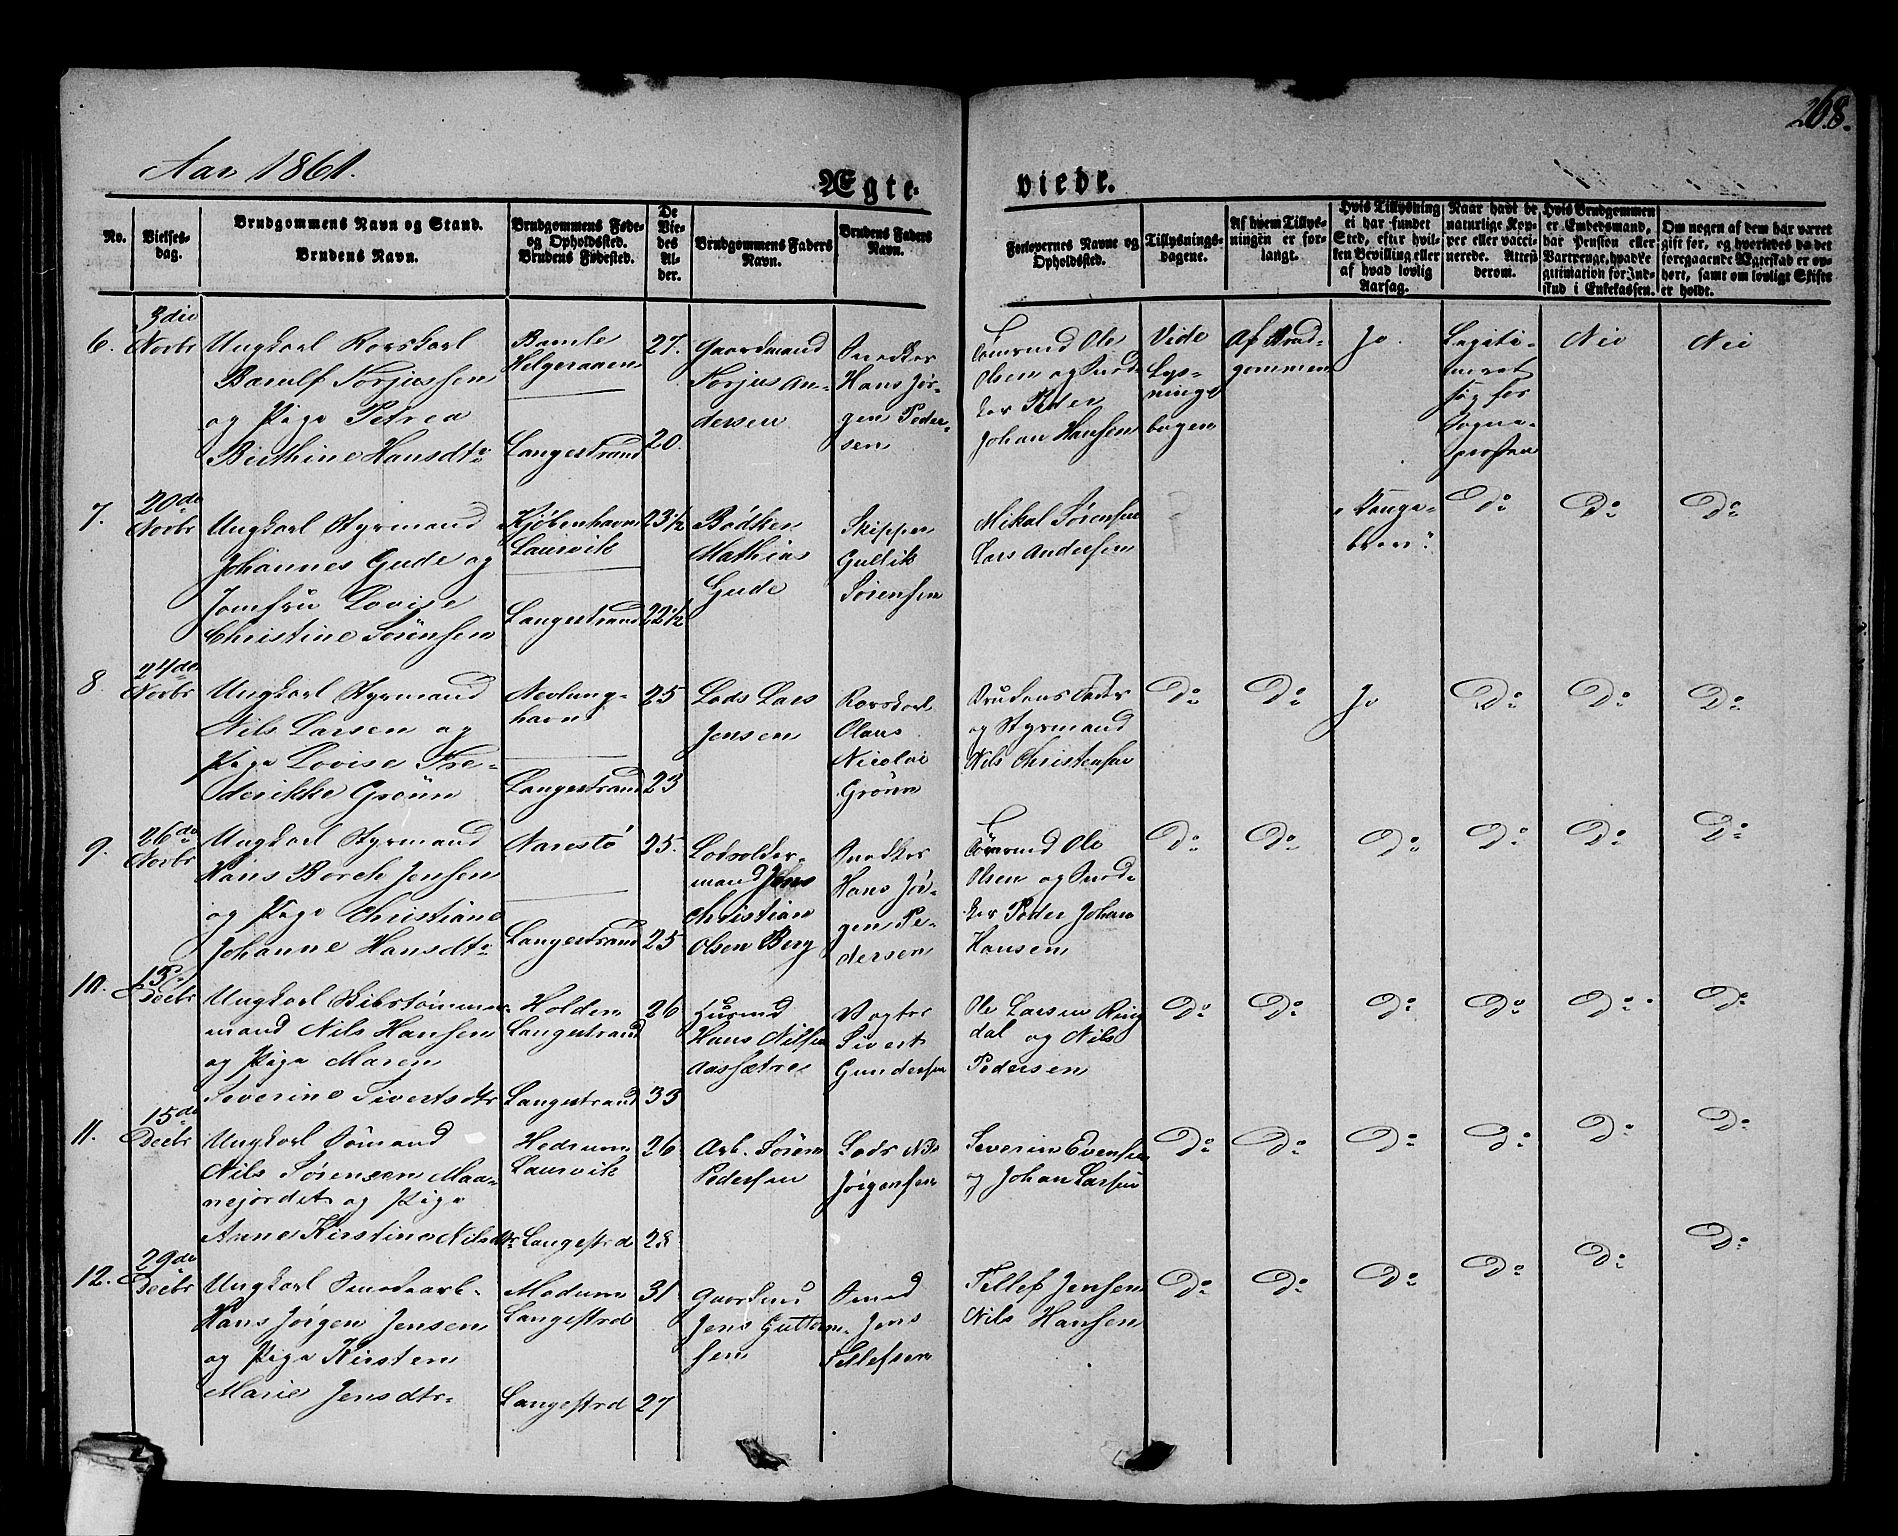 268.
Aar 1861.
Ægte-
viede.
No.
Vielses-
dag.
Brudgommens Navn og Stand.
Brudens Navn.
Brudgommens Føde-
og Opholdssted.
Brudens Fødested.
De
Vie-
des
Al-
der.
Brudgommens Faders
Navn.
Brudens Faders
Navn.
Forlovernes Navne og
Opholdssted.
Tillysnings-
dagene.
Af hvem Tillys-
ningen er for-
langt.
Hvis Tillysning
ei har fundet
Sted, efter hvil-
ken Bevilling eller
af hvad lovlig
Aarsag.
Naar havt de
naturlige Kop-
per eller vacci-
nerede. Attest
derom.
Hvis Brudgommen
er Embedsmand,
har Pension eller
Vartpenge, hvad
gitimation for Ind-
skud i Enkekassen.
Om nogen af dem har været
gift før, og hvorledes da det
foregaaende Ægteskab er op-
hørt, samt om lovligt Skifte
er holdt.
6.
3die
Novbr
Ungkarl Rorskarl
Torjussen
og Pige Petrea
Birthine Hansdtr
Bamle
Helgeraaen
Langestrand
27.
20.
Gaardmand
Torjus An-
dersen
Snedker
Hans Jør-
gen Peder-
sen
Tømrmd Ole
Olsen og Sned-
ker Peder
Johan Hansen
Vide
Lys-
nings
bogen
Af Brud-
gommen
Jo.
Legiti-
meret
sig for
Sogne-
presten
Nei
Nei
7.
20de
Novbr
Ungkarl Styrmand
Johannes Gude og
Jomfru Lovise
Christine Sørensen
Kjøbenhavn
Laurvik
Langestrand
23½
22½
Bødker
Mathias
Gude
Skipper
Gullik
Sørensen
Mikal Sørensen
Lars Andersen
Konge-
brev.
Do
Do
Do
8
24de
Novbr
Ungkarl Styrmand
Nils Larsen og
Pige Lovise Fre-
derikke Grønn
Nevlung-
havn
Langestrand
25
23
Lods Lars
Jensen
Rorskarl
Olaus
Nicolai
Grønn
Brudens Fader
og Styrmand
Nils Christensen
Do
Do
Jo
Do
Do
Do
9.
26de
Novbr
Ungkarl Styrmand
Hans Borch Jensen
og Pige Christiane
Johanne Hansdtr
Narestø
Langestrand
25.
25
Lodsolder-
mand Jens
Christian
Olsen Berg
Snedker
Hans Jør-
gen Pe-
dersen
Tømrmd Ole
Olsen og Sned-
ker Peder Johan
Hansen
Do
Do
Do
Do
Do
Do
10.
Decbr
Ungkarl Skibstømmer-
mand Nils Hansen
og Pige Maren
Severine Sivertsdtr
Holden
Langestrand
Langestrand
26
33
Husmd
Hans Nilsen
Aassætre
Vogter
Sivert
Gundersen
Ole Larsen Ring
dal og Nils
Pedersen
Do
Do
Do
Do
Do
Do
11.
15de
Decbr
Ungkarl Sømand
Nils Sørensen Maa-
nejordet og Pige
Anne Kirstine Nilsdtr
Hedrum
Laurvik
Langestrd
26
28
Arb. Søren
Pedersen
Lods Nils
Jørgensen
Severin Evensen
og Johan Larsen
Do
Do
Do
Do
Do
Do
12.
29de
Decbr
Ungkarl Smedearb.
Hans Jørgen Jensen
og Pige Kirsten
Marie Jensdtr
Modum
Langestrd
Langestrd
31
27
Gaardmd
Jens Guttorm-
sen
Smed
Jens
Tellefsen
Tellef Jensen
Nils Hansen
Do
Do
Do
Do
Do
Do